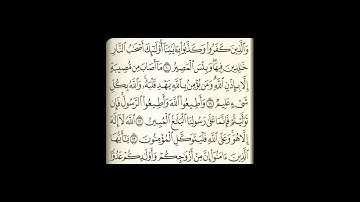 وَٱلَّذِينَ كَفَرُوا۟ وَكَذَّبُوا۟ بِـَٔايَٰتِنَآ أُو۟لَٰٓئِكَ أَصْحَٰبُ ٱلنَّارِ
خَٰلِدِينَ فِيهَا وَبِئْسَ ٱلْمَصِيرُ ١٠ مَآ أَصَابَ مِن مُّصِيبَةٍ
إِلَّا بِإِذْنِ ٱللَّهِ وَمَن يُؤْمِنۢ بِٱللَّهِ يَهْدِ قَلْبَهُۥ وَٱللَّهُ بِكُلِّ
شَىْءٍ عَلِيمٌ ١١ وَأَطِيعُوا۟ ٱللَّهَ وَأَطِيعُوا۟ ٱلرَّسُولَ فَإِن
تَوَلَّيْتُمْ فَإِنَّمَا عَلَىٰ رَسُولِنَا ٱلْبَلَٰغُ ٱلْمُبِينُ ١٢ ٱللَّهُ لَآ إِلَٰهَ
إِلَّا هُوَ وَعَلَى ٱللَّهِ فَلْيَتَوَكَّلِ ٱلْمُؤْمِنُونَ ١٣ يَٰٓأَيُّهَا
ٱلَّذِينَ ءَامَنُوٓا۟ إِنَّ مِنْ أَزْوَٰجِكُمْ وَأَوْلَٰدِكُمْ عَدُوًّا